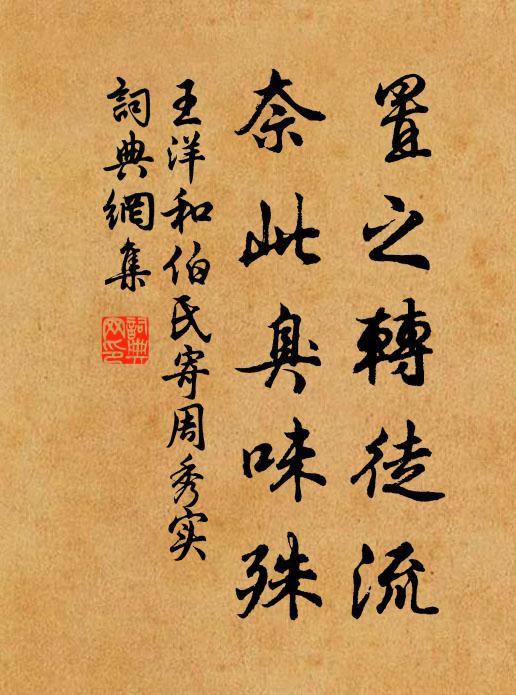 置之轉徒流
奈此臭味殊
王洋和伯氏寄周秀实
詞典網集
詞典
网印